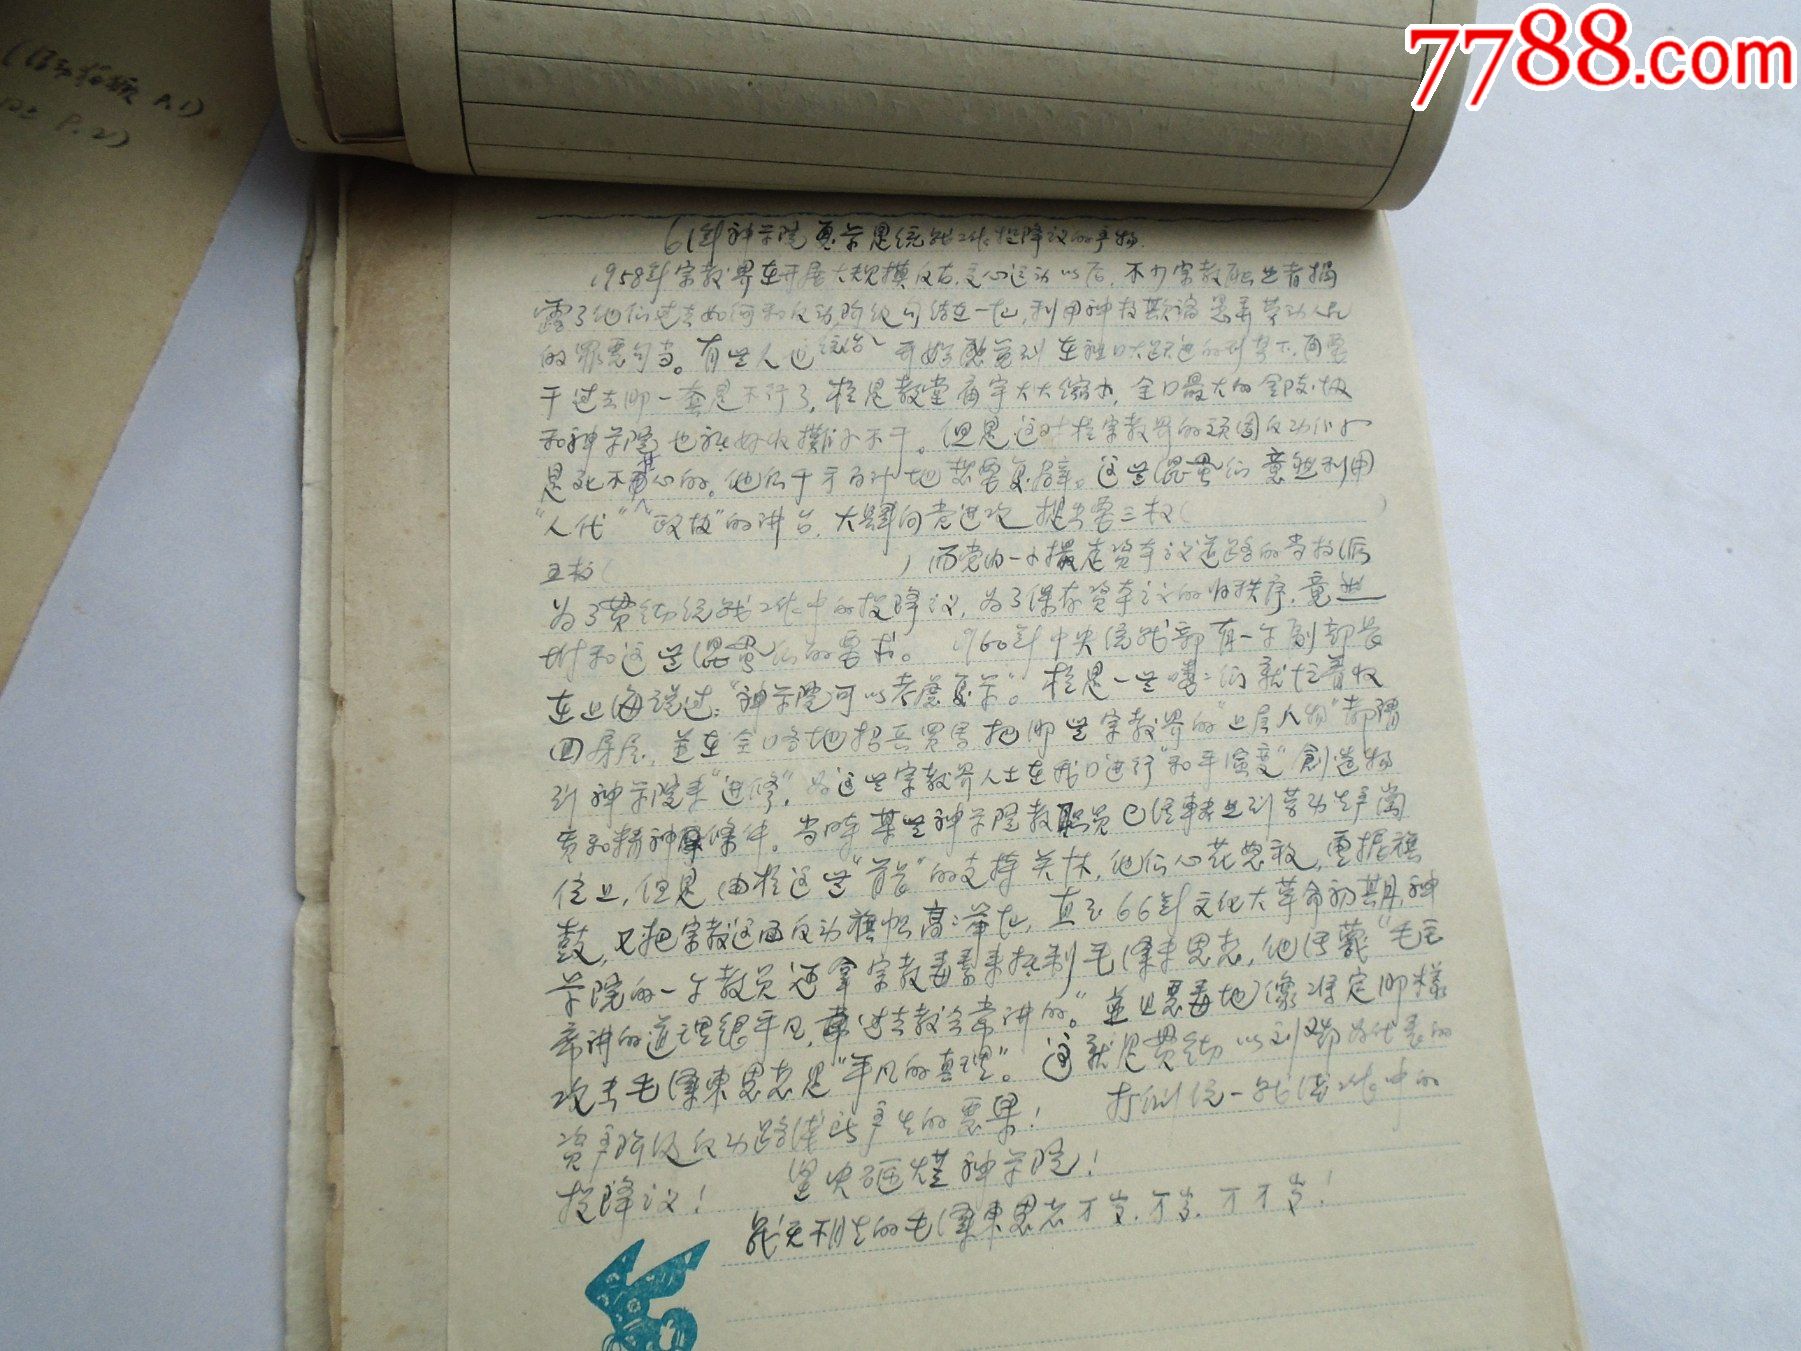 7788.com
P.1)
P.2)
61年神学院复学是统战工作投降主义的产物
1958年宗教界在开展大规模反右、交心运动以后，不少宗教职业者揭
露了他们过去如何和反动阶级勾结在一起，利用神权欺骗愚弄劳动人民
的罪恶勾当。有些人也 开始感觉到在祖国大跃进的形势下，再要
干过去那一套是不行了，于是教堂庙宇大大缩小，全国最大的金陵协
和神学院也只好收摊不干。但是这时宗教界的顽固反动分子
是死不甘心的。他们千方百计地想要复辟。这些混蛋们竟然利用
“人代”“政协”的讲台，大肆向党进攻 提出要三权（ ）
五权（ ）而党内一小撮走资本主义道路的当权派
为了贯彻统战工作中的投降主义，为了保存资本主义的旧秩序，竟然
附和这些混蛋们的要求。1960年中央统战部有一个副部长
在上海说过：“神学院可以考虑复学”。于是一些喽喽们就忙着收
回房屋，并在全国各地招兵买马把那些宗教界的“上层人物”都
到神学院来“进修”，为这些宗教界人士在我国进行“和平演变”创造物
质和精神條件。当时某些神学院教职员已经转业到劳动生产岗
位上，但是由于这些“首长”的支持关怀，他们心花怒放，重振旗
鼓，又把宗教这面反动旗帜高高举起，直至66年文化大革命初期，神
学院的一个教员还拿宗教毒素来抵制毛泽东思想，他污蔑“毛主
席讲的道理很平凡，过去教会常讲的。”並且恶毒地 那样
攻击毛泽東思想是“平凡的真理”。这就是贯彻以刘邓为代表的
资产阶级反动路线所产生的恶果！ 打倒统一战线工作中的
投降主义！ 坚决砸烂神学院！
战无不胜的毛泽東思想万岁，万岁，万万岁！